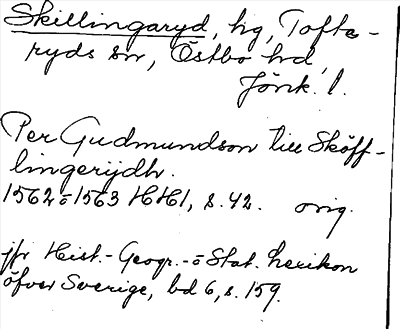 Skillingaryd, hg, Tofta-
ryds sn, Östbo hd,
Jönk. l.
Per Gudmundson till Sköff-
lingerijdh.
1562 o 1563 HH1, s. 42. orig.
jfr Hist.-Geogr.-o Stat. Lexikon
öfver Sverige, bd 6, s. 159.